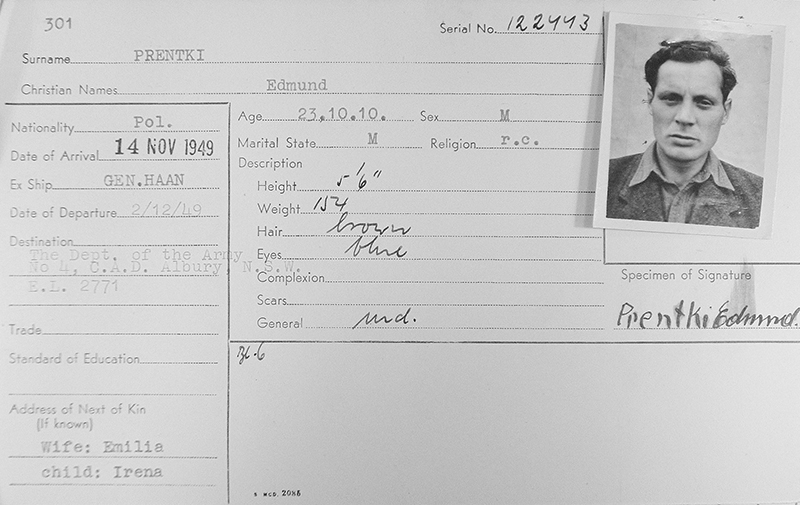 301
Serial No. 122443
Surname PRENTKI
Christian Names Edmund
Nationality Pol.
Date of Arrival 14 NOV 1949
Ex Ship GEN.HAAN
Date of Departure 2/12/49
Destination
The Dept. of the Army
No 4, C.A.D. Albury, N.S.W.
E.L. 2771
Trade
Standard of Education
Address of Next of Kin
(If known)
Wife: Emilia
child: Irena
Age 23.10.10. Sex M
Marital State M Religion r.c.
Description
Height 5'6"
Weight 154
Hair brown
Eyes blue
Complexion
Scars
General
Bl. 6
Specimen of Signature
Prentki Edmund.
S MCD. 2086